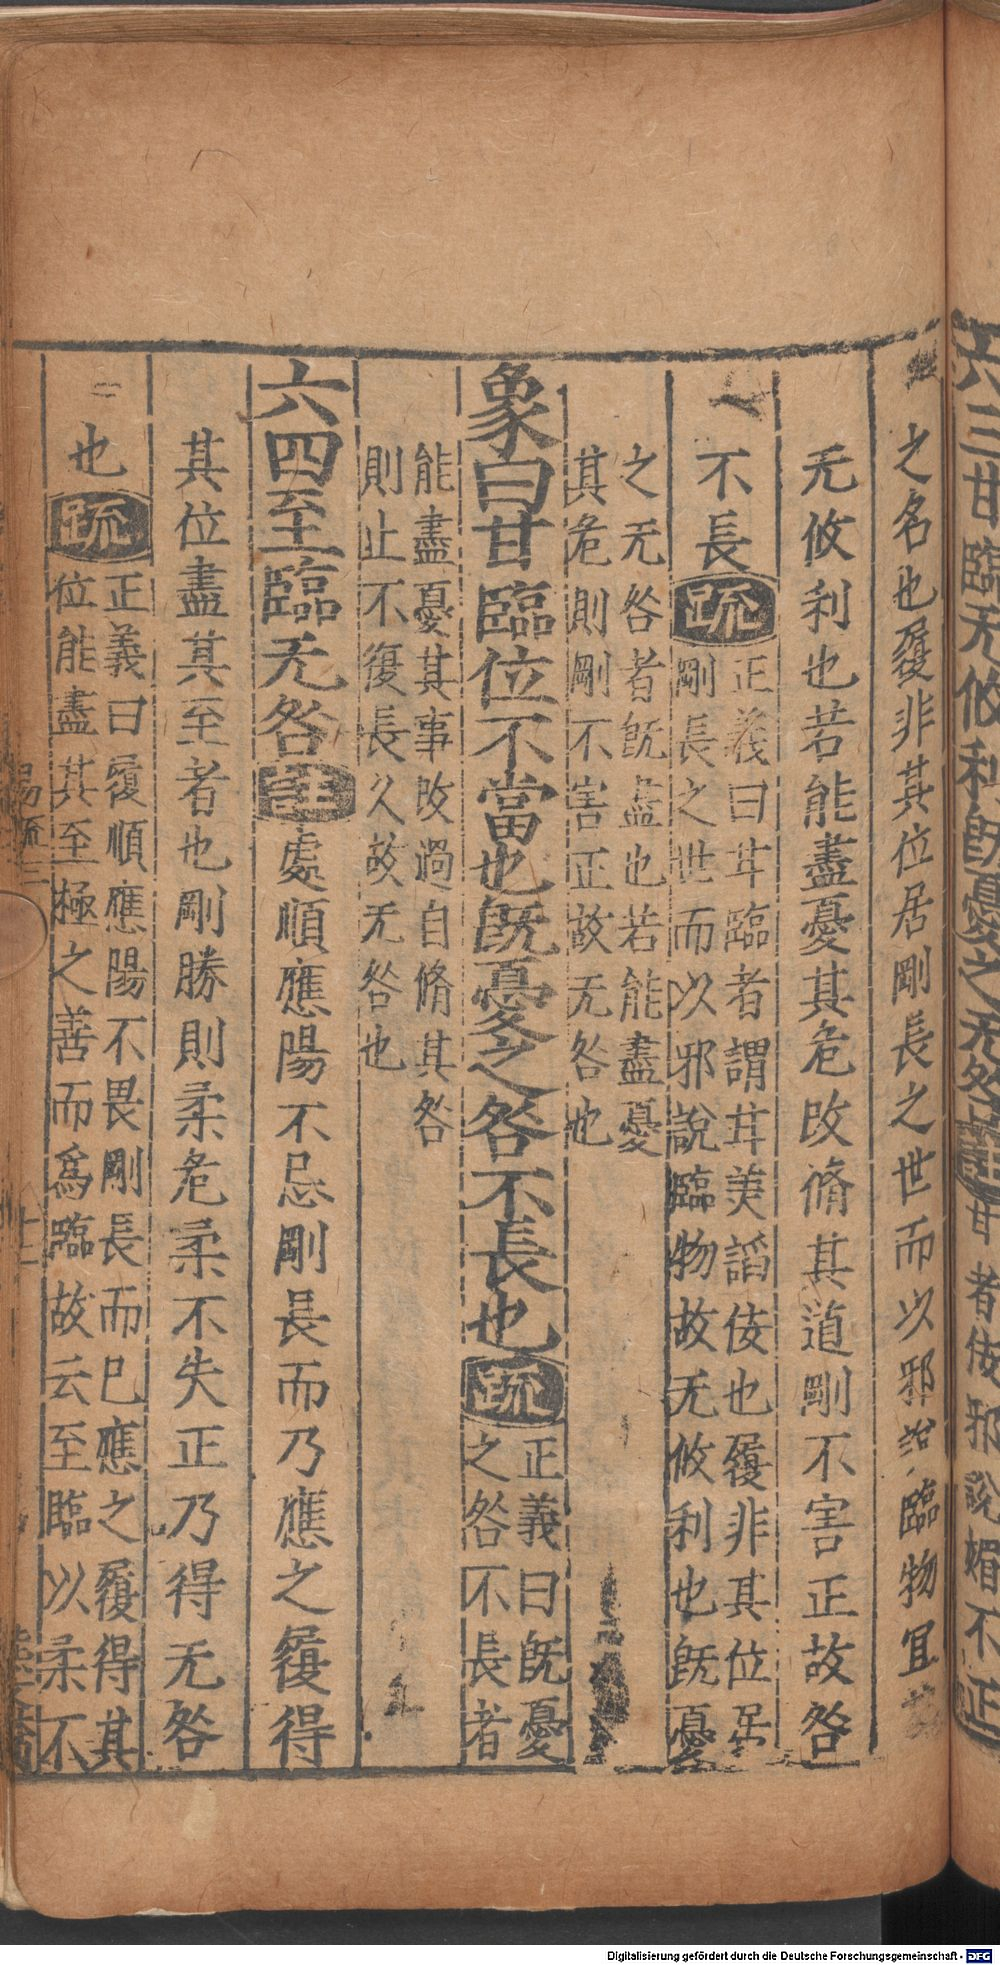 六三甘臨无攸利旣憂之无咎註甘者佞邪說媚不正
之名也履非其位居剛長之世而以邪說臨物宜
无攸利也若能盡憂其危改脩其道剛不害正故咎
不長疏
正義曰甘臨者謂甘美諂佞也履非其位居
剛長之世而以邪說臨物故无攸利也旣憂
之无咎者旣盡也若能盡憂
其危則剛不害正故无咎也
象曰甘臨位不當也旣憂之咎不長也疏
正義曰旣憂
之咎不長者
能盡憂其事改過自脩其咎
則止不復長久故无咎也
六四至臨无咎註處順應陽不忌剛長而乃應之履得
其位盡其至者也剛勝則柔危柔不失正乃得无咎
也疏
正義曰履順應陽不畏剛長而已應之履得其
位能盡其至極之善而爲臨故云至臨以柔不
易疏三
十二
Digitalisierung gefördert durch die Deutsche Forschungsgemeinschaft - DFG